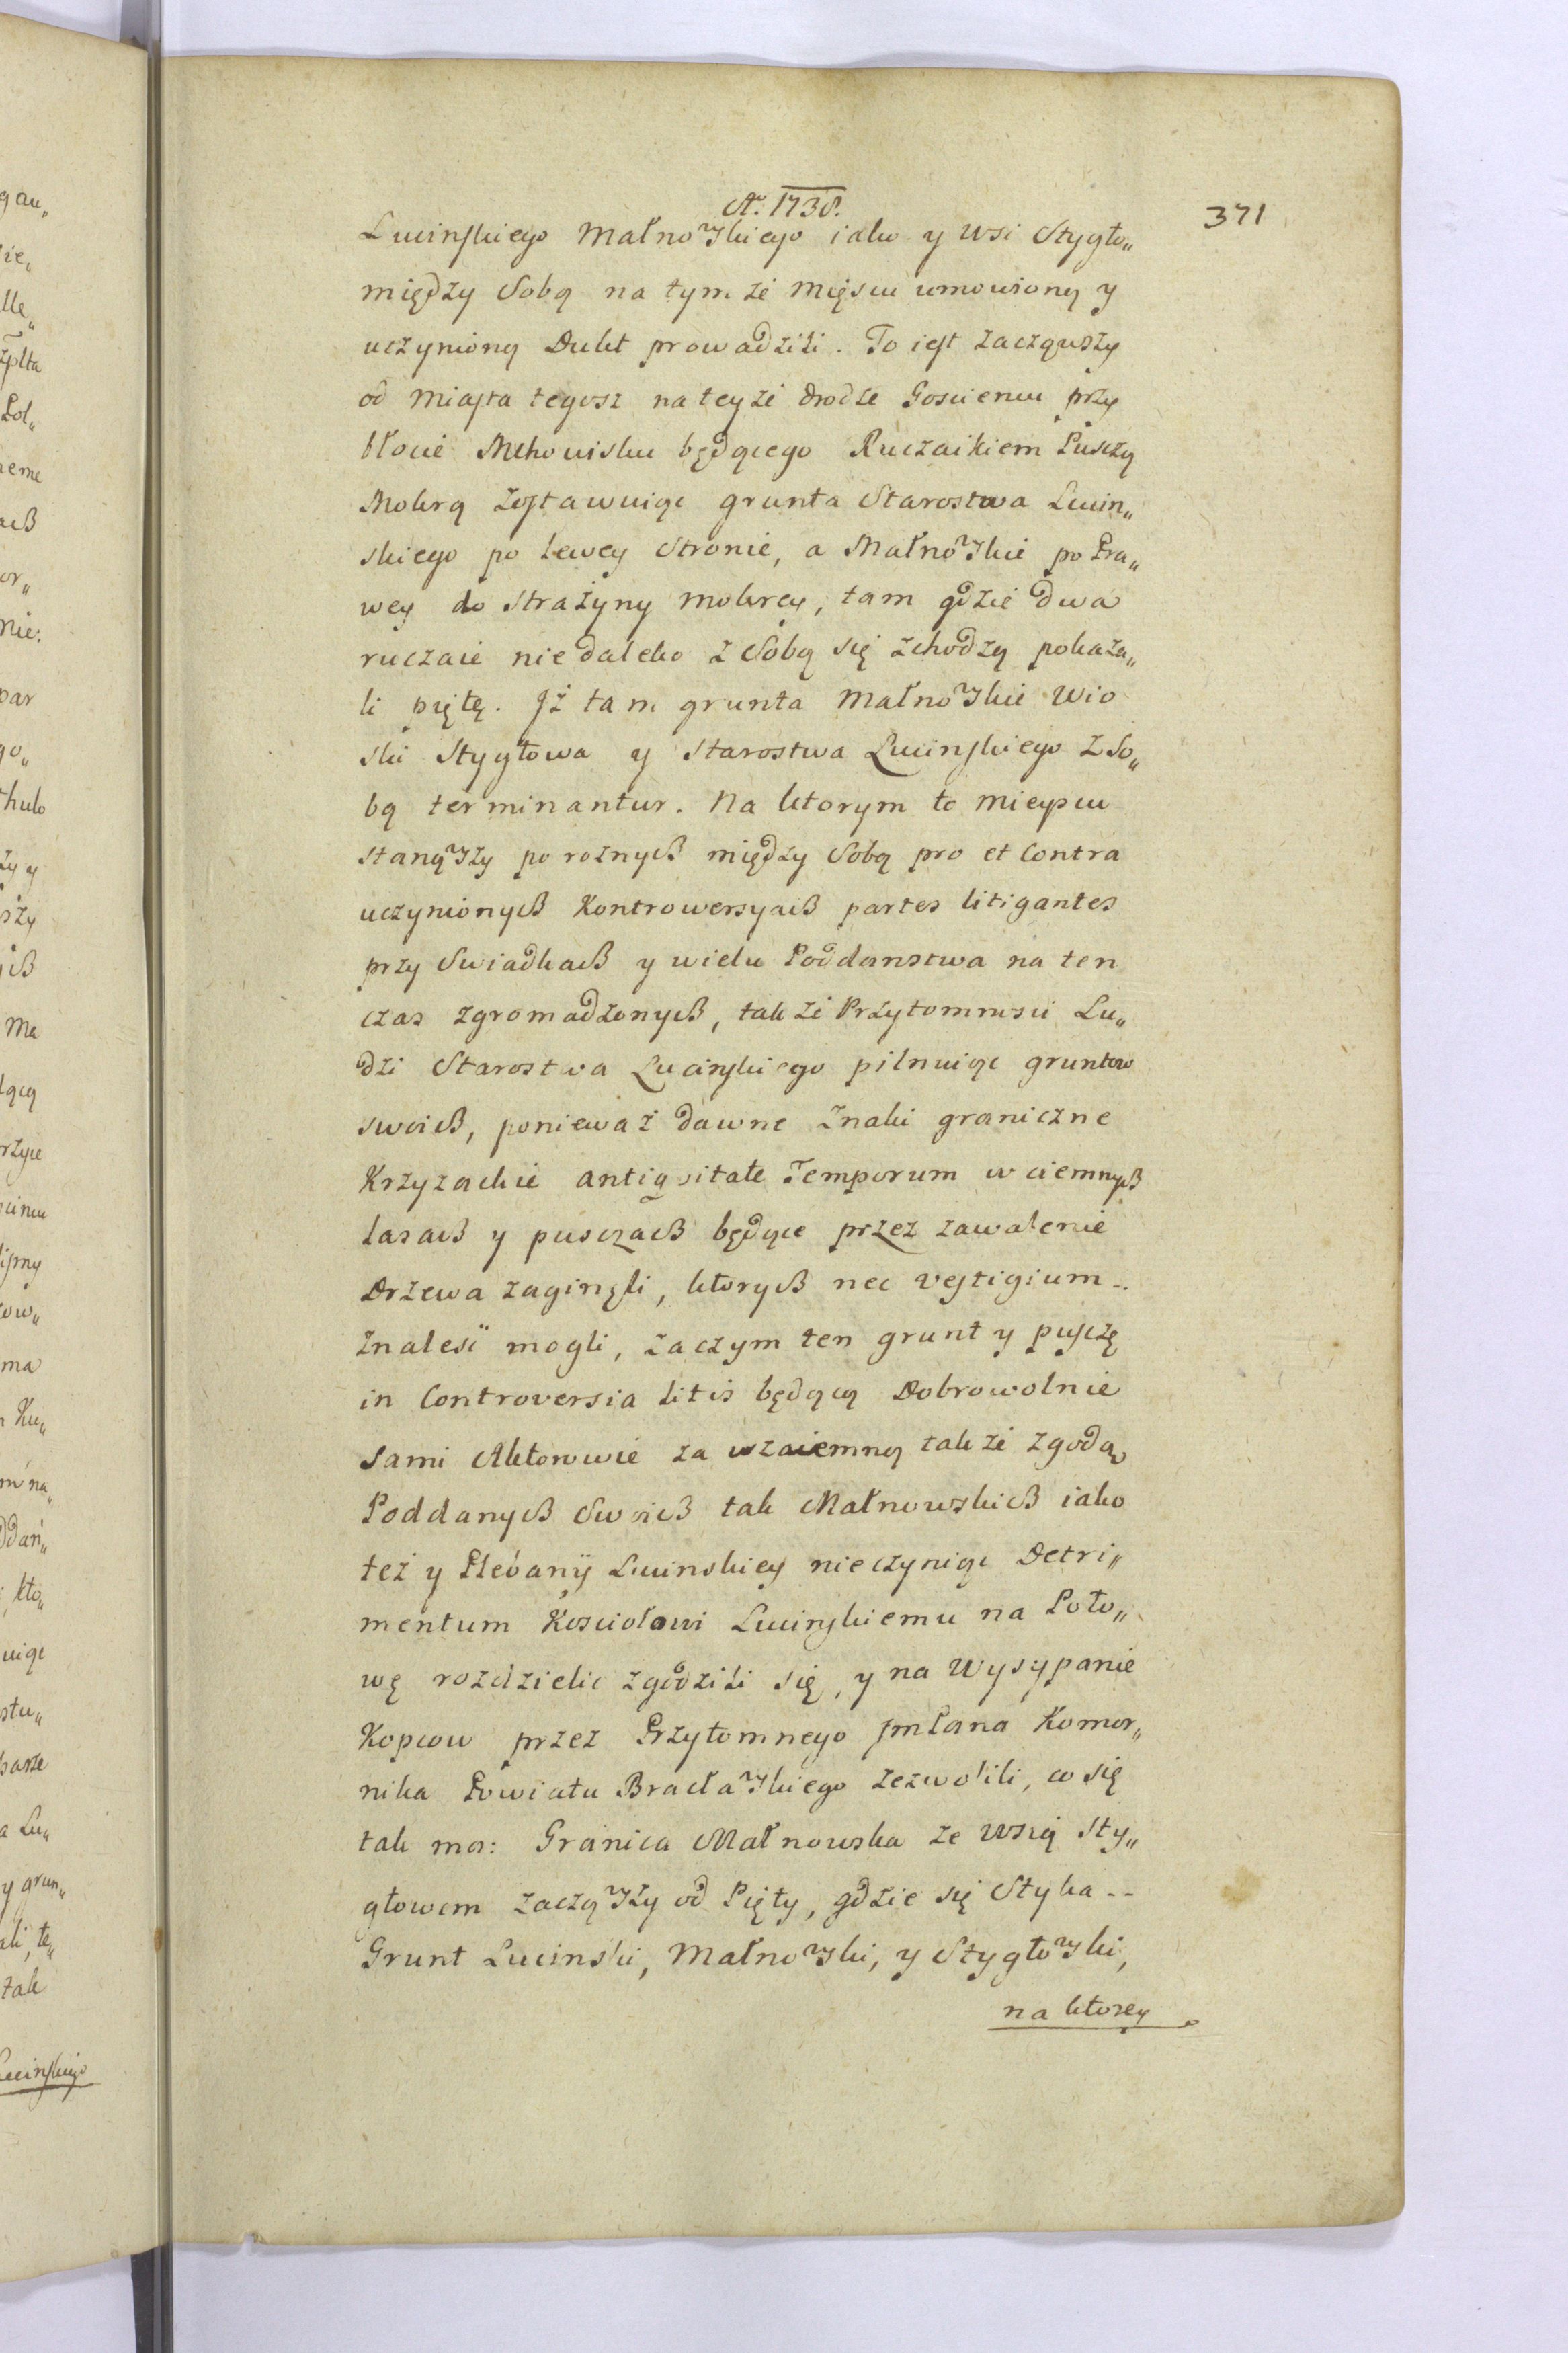 Aº. 1738.
371
Lucinskiego Małnowskiego iako y wsi Stygło„
między Sobą na tym że mięscu umowioną y
uczynioną Dukt prowadzili. To iest zacząwszy
od Miasta tegosz na teyże drodze Goscieniu przy
błocie Mchowisku będącego Ruczaikiem Puszczą
Mokrą zostawuiąc grunta Starostwa Lucin„
skiego po Lewey Stronie, a Małnowskie po Pra„
wey do Strażyny mokrey, tam gdzie dwa
ruczaie niedaleko z Sobą się zchodzą pokaza„
li piętę. Iż tam grunta Małnowskie Wio
ski Stygłowa y Starostwa Lucinskiego z So„
bą terminantur. Na ktorym to mieyscu
stanąwszy po rożnych między Sobą pro et Contra
uczynionych Kontrowersyach partes litigantes
przy Swiadkach y wielu Poddanstwa na ten
czas zgromadzonych, także Przytomnosci Lu„
dzi Starostwa Lucinskiego pilnuiąc gruntow
swoich, ponieważ dawne Znaki graniczne
Krzyzackie antiqsitate Temporum w ciemnych
lasach y pusczach będące przez zawalenie
Drzewa zaginęli, ktorych nec vestigium -.
Znalesć mogli, zaczym ten grunt y pusczę
in Controversia litis będącą Dobrowolnie
sami Aktorowie za wzaiemną także zgodą
Poddanych Swoich tak Małnowskich iako
też y Plebanij Lucinskiey nieczyniąc Detri„
mentum Kosciołowi Lucinskiemu na Poło„
wę rozdzielic zgodzili się, y na Wysypanie
Kopcow przez Przytomnego JmPana Komor„
nika Powiatu Bracławskiego zezwolili, co się
tak ma: Granica Małnowska ze Wsią Sty„
głowem zacząwszy od Pięty, gdzie się Styka --
Grunt Lucinski, Małnowski, y Stygłowski,
na ktorey